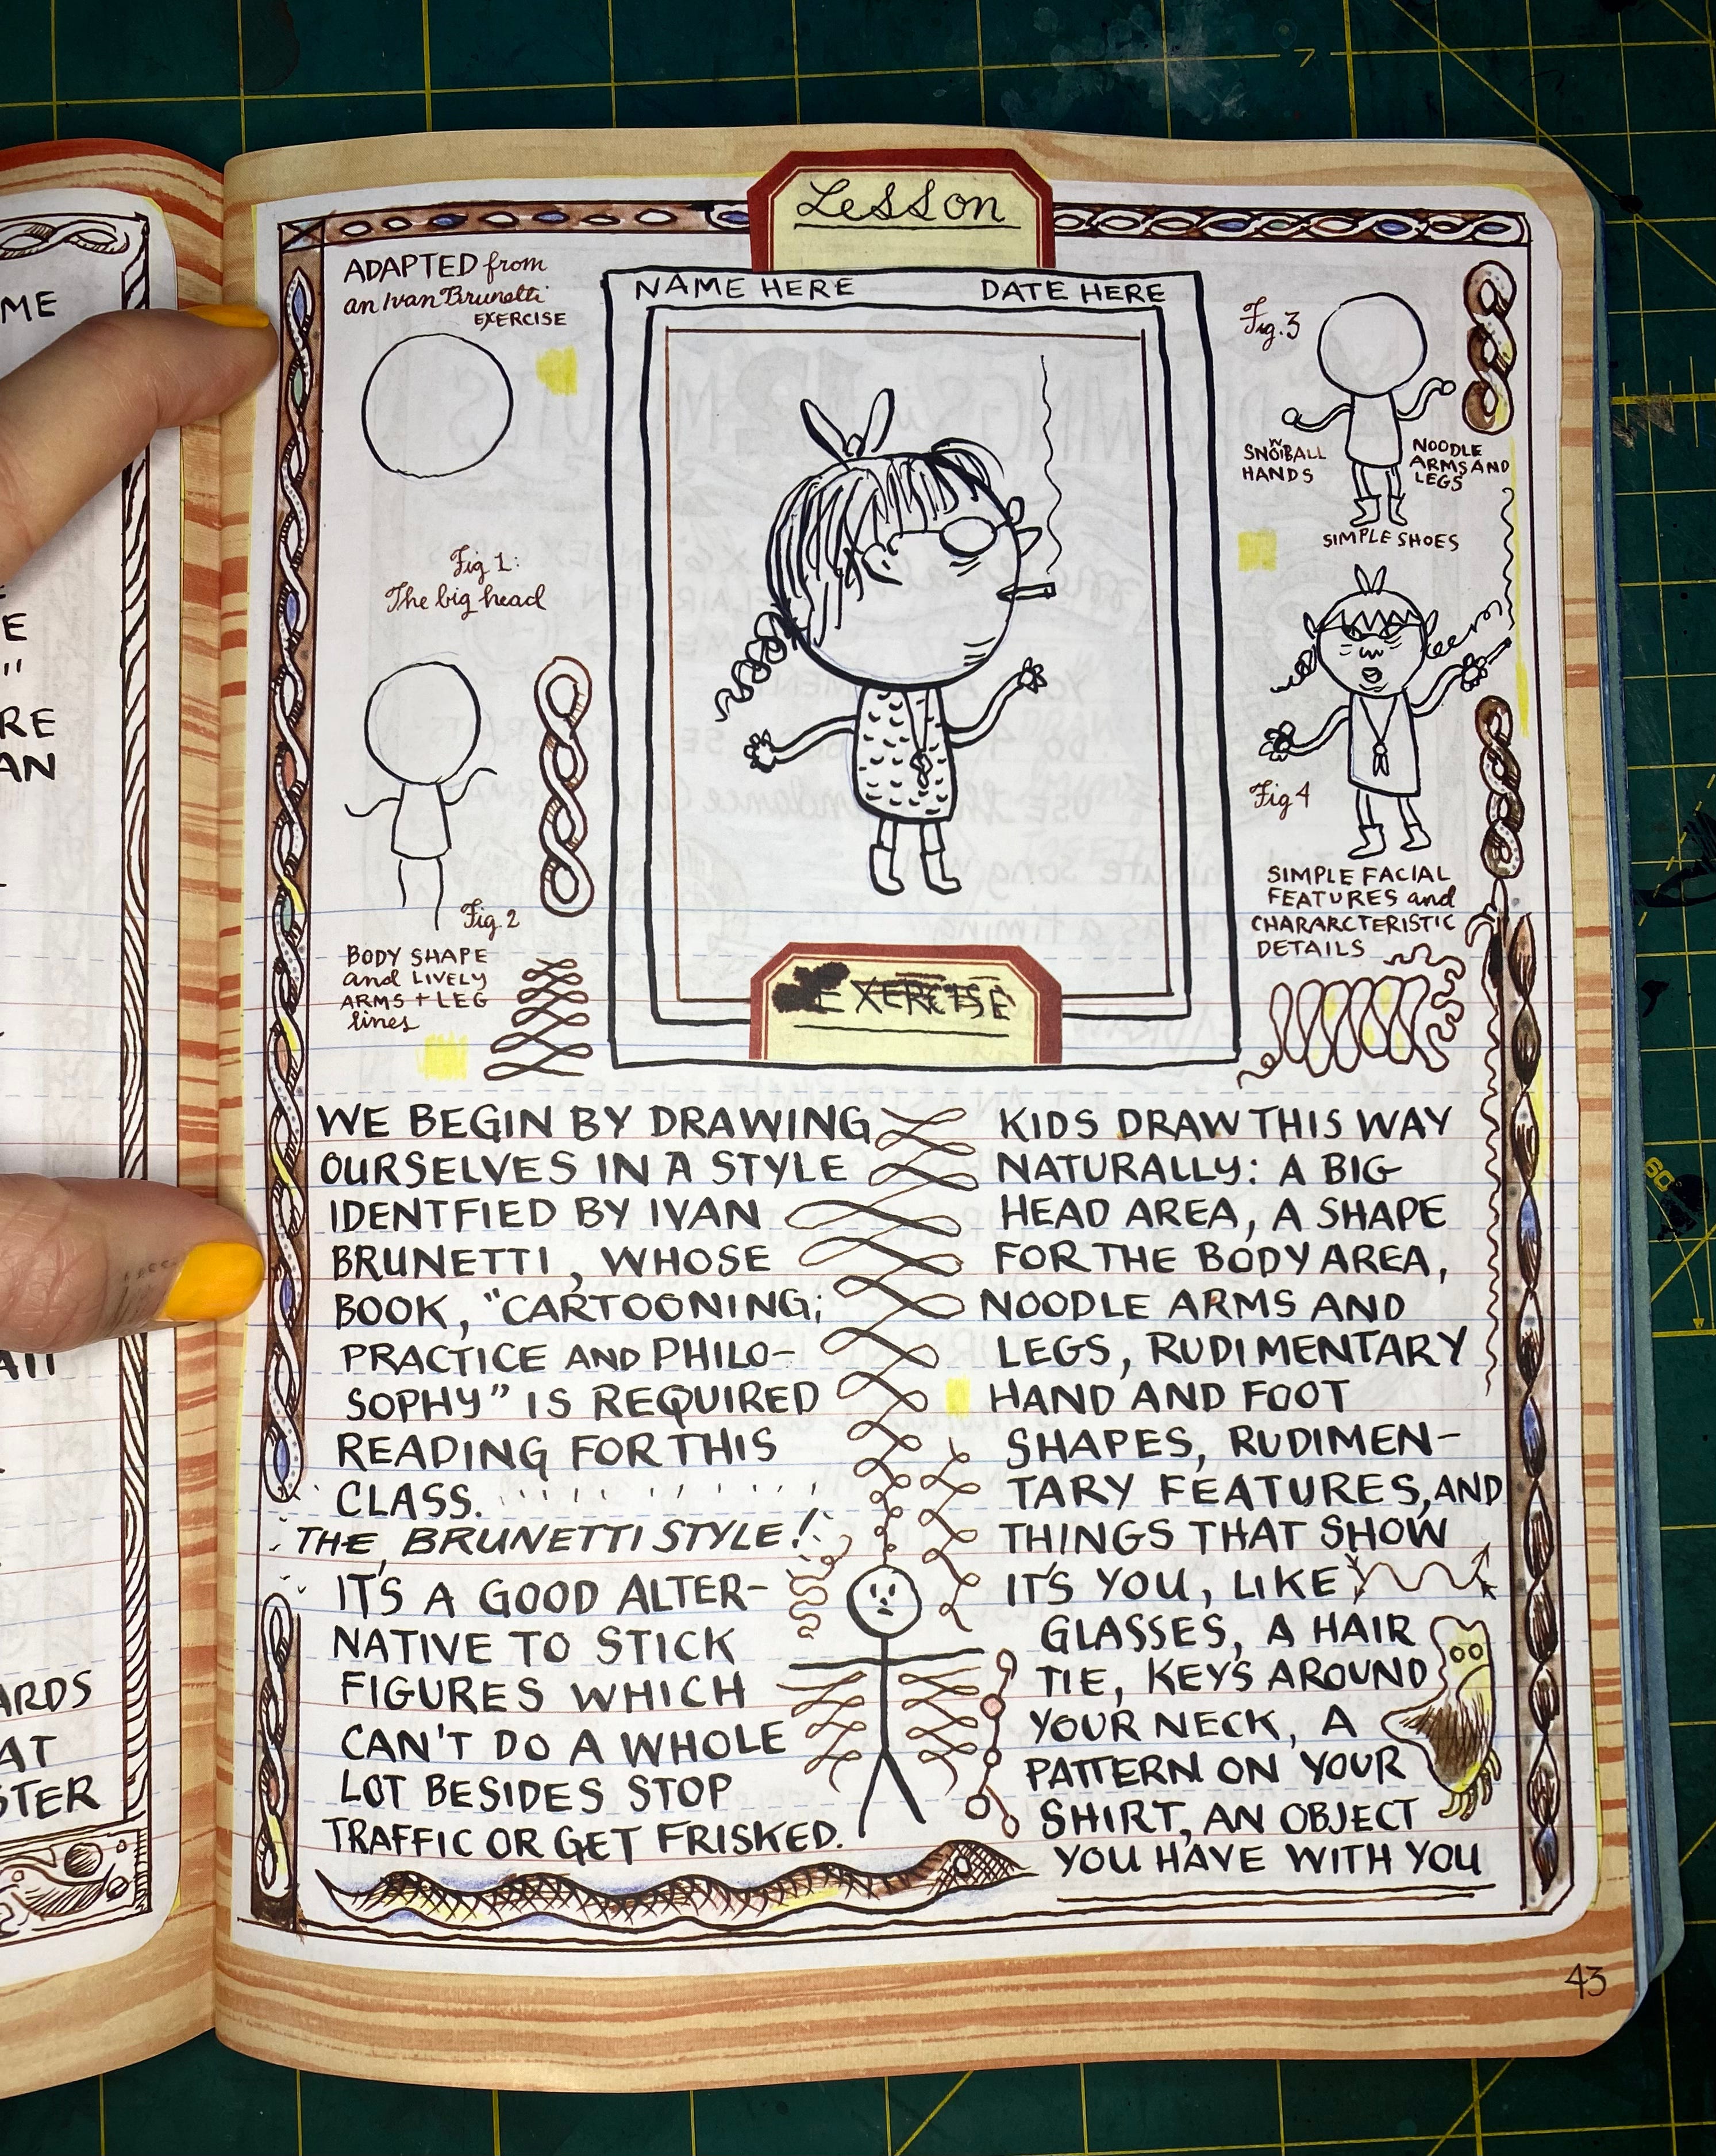 ME
E
"
RE
AN
ARDS
AT
STER
Lesson
ADAPTED from
an Ivan Brunetti
EXERCISE
Fig 1:
The big head
Fig. 2
BODY SHAPE
and LIVELY
ARMS + LEG
lines
NAME HERE DATE HERE
EXERCISE
Fig. 3
SNOWBALL
HANDS
NOODLE
ARMS AND
LEGS
SIMPLE SHOES
Fig 4
SIMPLE FACIAL
FEATURES and
CHARARCTERISTIC
DETAILS
WE BEGIN BY DRAWING
OURSELVES IN A STYLE
IDENTFIED BY IVAN
BRUNETTI, WHOSE
BOOK, "CARTOONING;
PRACTICE AND PHILO-
SOPHY" IS REQUIRED
READING FOR THIS
CLASS.
THE BRUNETTI STYLE!
IT'S A GOOD ALTER-
NATIVE TO STICK
FIGURES WHICH
CAN'T DO A WHOLE
LOT BESIDES STOP
TRAFFIC OR GET FRISKED.
KIDS DRAW THIS WAY
NATURALLY: A BIG
HEAD AREA, A SHAPE
FOR THE BODY AREA,
NOODLE ARMS AND
LEGS, RUDIMENTARY
HAND AND FOOT
SHAPES, RUDIMEN-
TARY FEATURES, AND
THINGS THAT SHOW
IT'S YOU, LIKE
GLASSES, A HAIR
TIE, KEYS AROUND
YOUR NECK, A
PATTERN ON YOUR
SHIRT, AN OBJECT
YOU HAVE WITH YOU
43
7
60